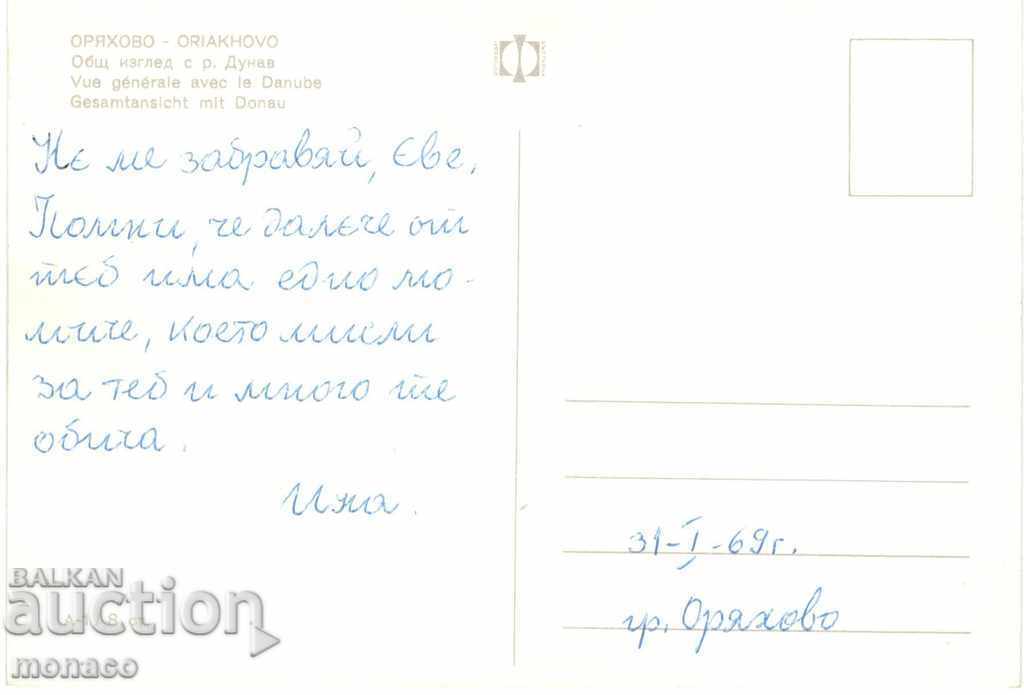 ОРЯХОВО - ORIAKHOVO
Общ изглед с р. Дунав
Vue générale avec le Danube
Gesamtansicht mit Donau
Не ме забравяй, Еве,
Помни, че далече от
теб има едно мо-
миче, което мисли
за теб и много те
обича.
Ина.
31-I-69г.
гр. Оряхово
BALKAN
auction
monaco